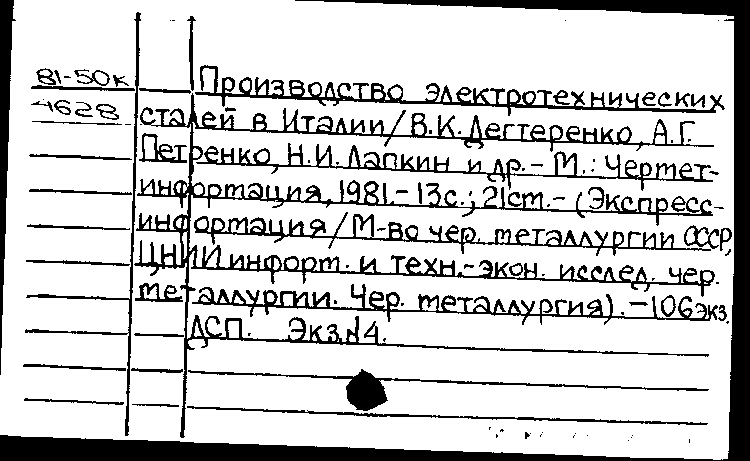 81-50к
4628
Производство электротехнических
сталей в Италии/В.К.Дегтеренко, А.Г.
Петренко, Н.И. Лапкин и др. - М.: Чермет-
информация, 1981. - 13с.; 21см. - (Экспресс-
информация/М-во чер. металлургии СССР,
ЦНИИ информ. и техн.-экон. исслед. чер.
металлургии. Чер. металлургия). - 106экз.
ДСП. Экз.№4.